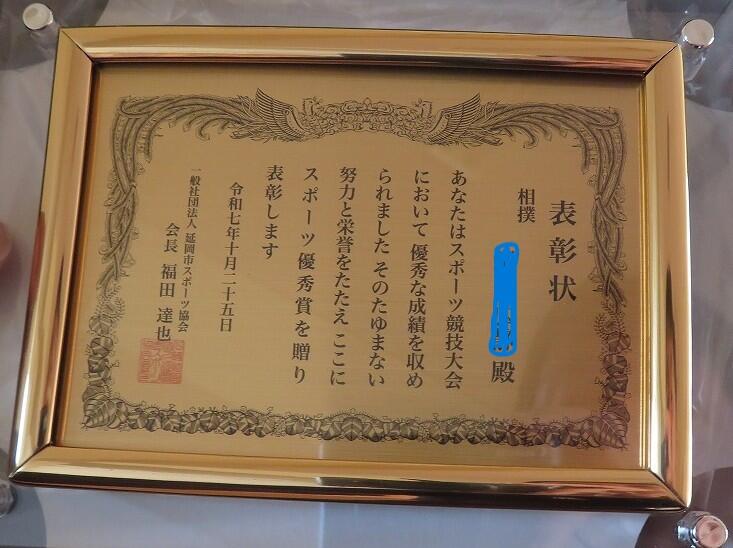 表彰状
相撲
殿
あなたはスポーツ競技大会
において優秀な成績を収め
られました そのたゆまない
努力と栄誉をたたえ ここに
スポーツ優秀賞を贈り
表彰します
令和七年十月二十五日
一般社団法人 延岡市スポーツ協会
会長 福田 達也